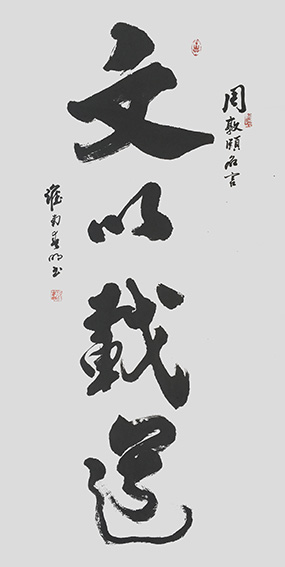 周敦頤名言
文以載道
書